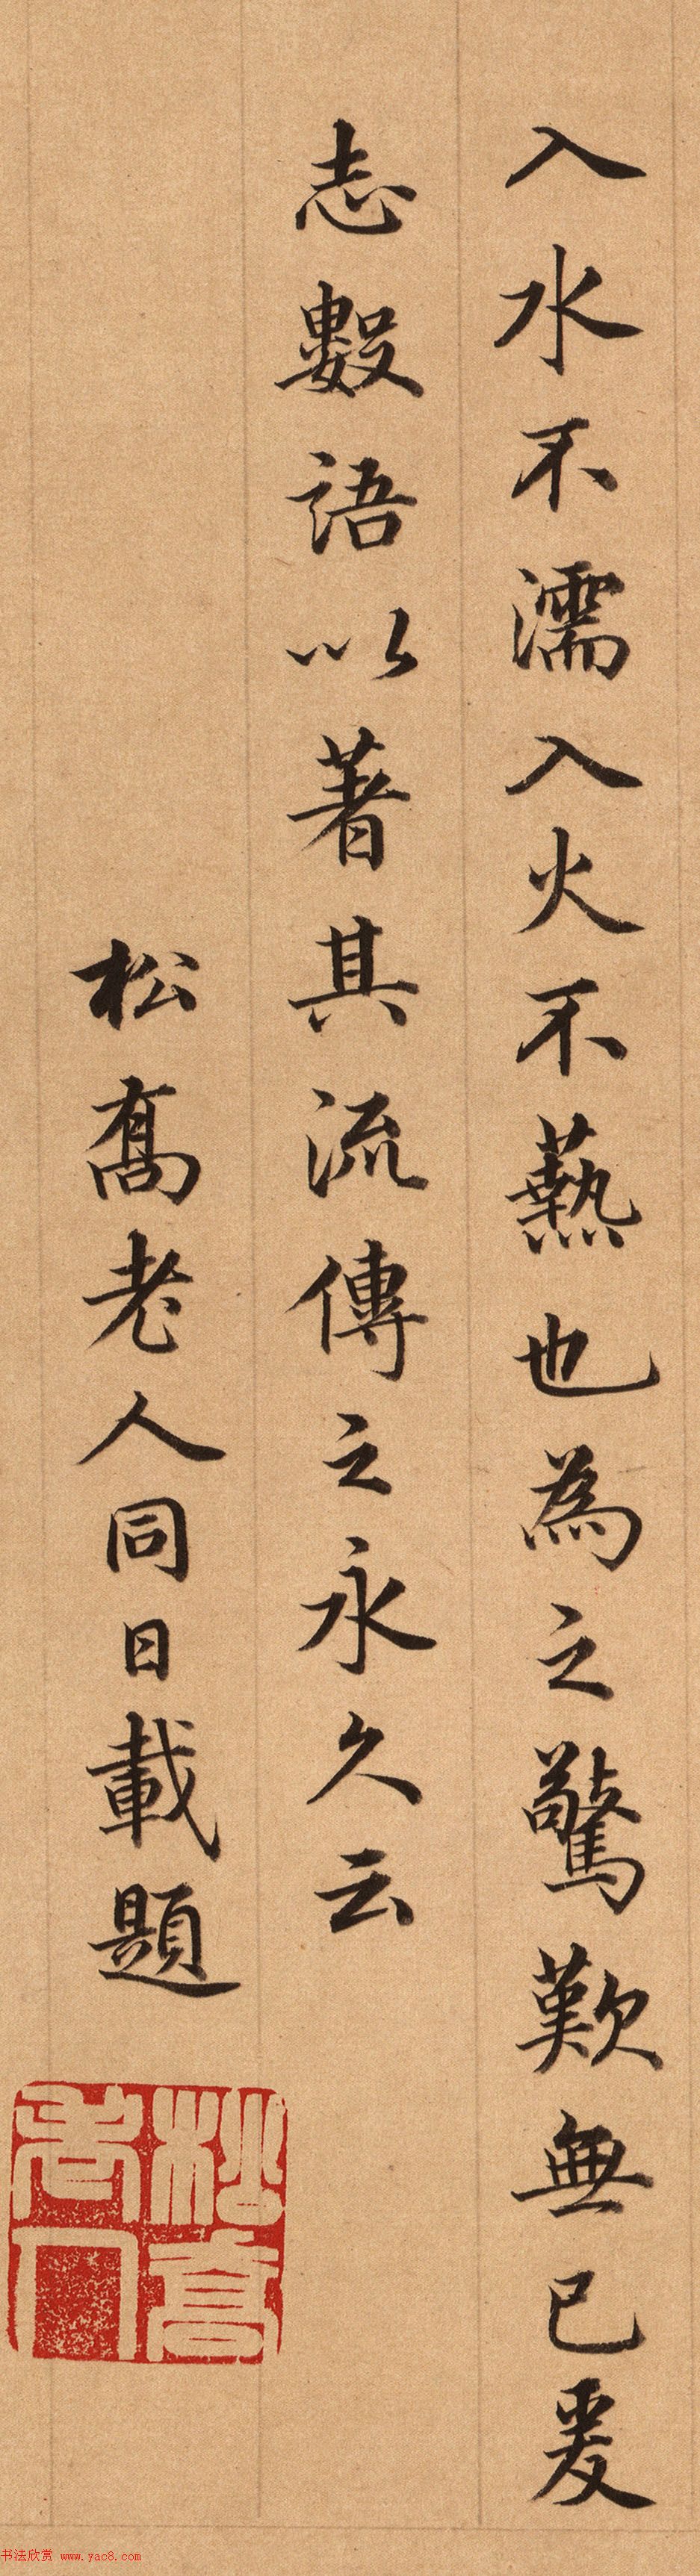 入水不濡入火不爇也為之驚歎無已爰
志數語以著其流傳之永久云
松喬老人同日載題
松喬老人
书法欣赏 www.yac8.com